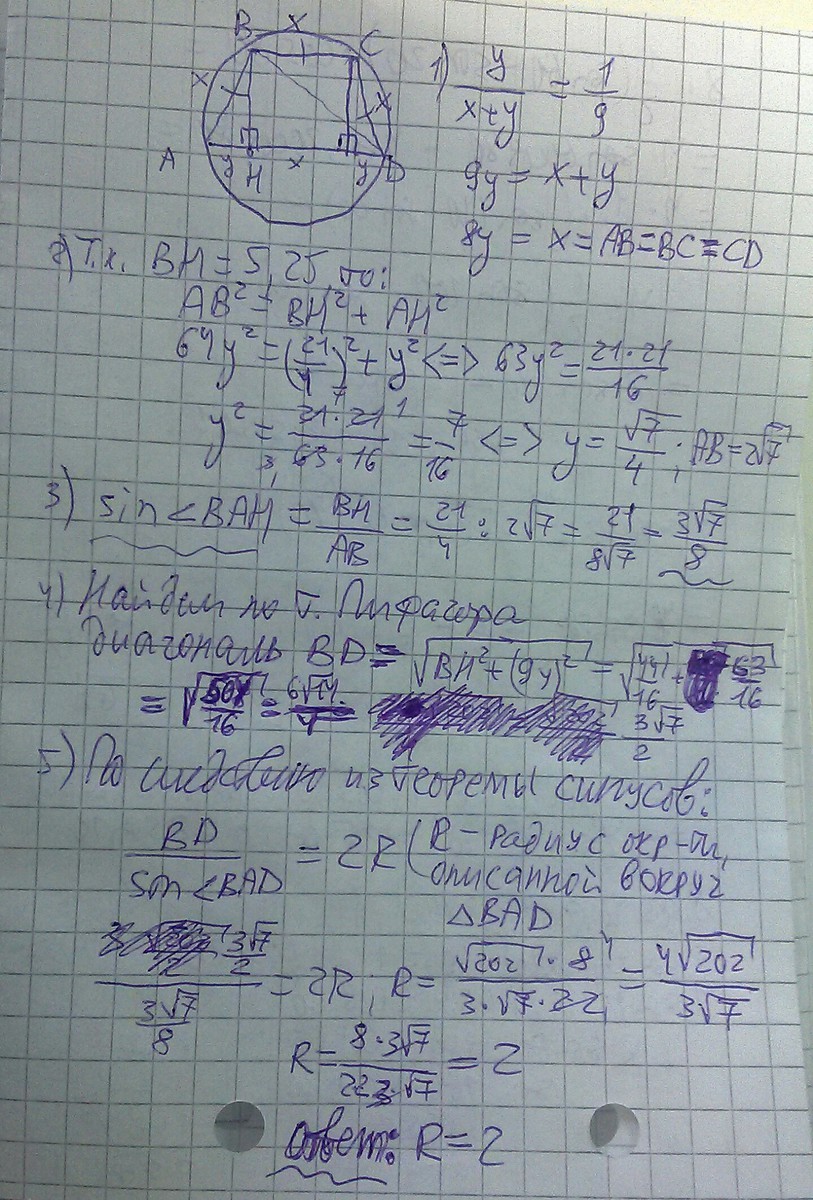 B x C
x x
A y H x y D
1) y/(x+y) = 1/9
9y = x+y
8y = x = AB=BC=CD
2) Т.к. BH = 5,25, то:
AB² = BH² + AH²
64y² = (21/4)² + y² <=> 63y² = 21·21/16
y² = 21·21/63·16 = 7/16 <=> y = √7/4; AB=2√7
3) sin<BAH = BH/AB = 21/4 : 2√7 = 21/8√7 = 3√7/8
4) Найдем по т. Пифагора
диагональ BD = √(BH²+(9y)²) = √(441/16 + 63/16)
= = 3√7/2
5) По следствию из теоремы синусов:
BD/sin<BAD = 2R (R – радиус окр-ти,
описанной вокруг
△BAD
(3√7/2)/(3√7/8) = 2R, R = √202·8/3·√7·2·2 = 4√202/3√7
R = 8·3√7/2·2·3·√7 = 2
Ответ: R=2